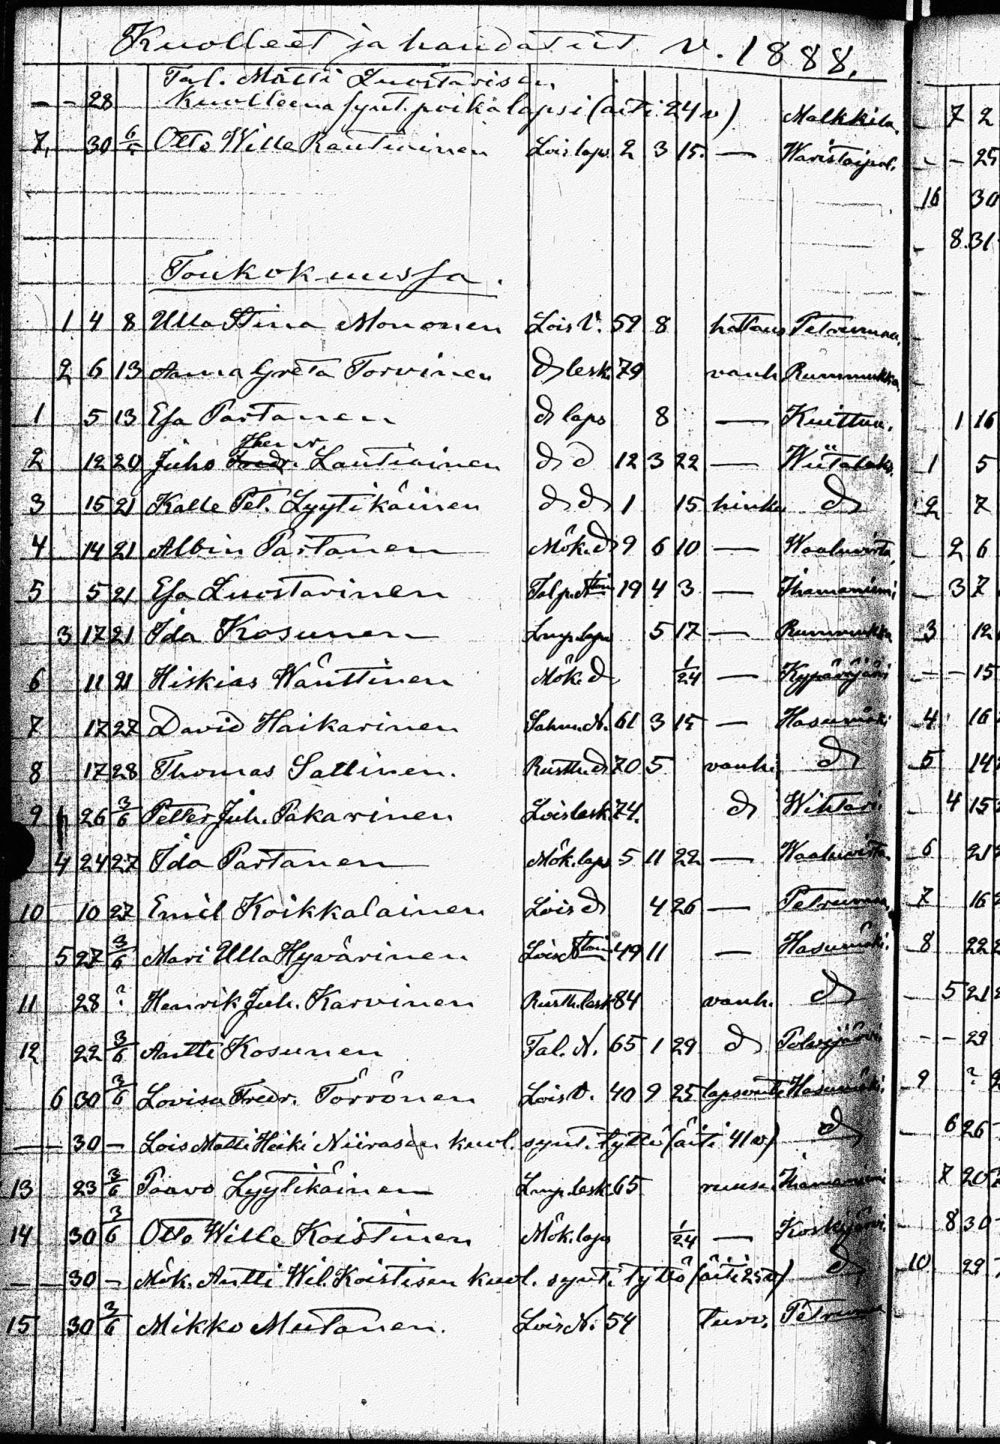 Kuolleet ja haudatut v. 1888.
Tal. Matti Luostarisen
— — 28 kuolleena synt. poikalapsi (äiti 24 v) Malkkila 7 2
7. 30 6/5 Otto Wille Rautiainen Lois laps 2 3 15. — Waristaipal. — — 25
16 30
8 31
Toukokuussa.
1 4 8 Ulla Stina Mononen Lois V. 59 8 hattaus Petrumaa.
2 6 13 Anna Greta Torvinen d lesk. 79 vanh. Rummukka
1 5 13 Esa Partanen d laps 8 — Kuittua. 1 16
Henr.
2 12 20 Juho Fredr. Lautiainen d d 12 3 22 — Wiitalaks. 1 5
3 15 21 Kalle Pet. Lyytikäinen d d 1 15 hinku d 2 7
4 14 21 Albin Partanen Mök. d 9 6 10 — Waaluvirta 2 6
5 5 21 Esa Luostarinen Tal. 19 4 3 — 3 7
3 17 21 Ida Kosunen laps 5 17 — Rummukka 3 12
6 11 21 Hiskias Wänttinen Mök. d 1/24 — Kypäräjärvi — — 15
7 17 27 David Haikarinen N. 61 3 15 — Hasumäki 4 16
8 17 28 Thomas Sallinen. Rusth. d 70 5 vanhu d 5 14
9 26 3/6 Petter Juh. Pakarinen Lois lesk. 74. d Wihtari 4 15
4 24 27 Ida Partanen Mök. laps 5 11 22 — Waaluvirta 6 21
10 10 27 Emil Koikkalainen Lois d 4 26 — Petrumaa 7 16
5 27 3/6 Mari Ulla Hyvärinen Lois 49 11 — Hasumäki. 8 22
11 28 ? Henrik Juh. Karvinen Rusth. lesk 84 vanh. d 5 21
12 22 3/6 Antti Kosunen Tal. N. 65 1 29 d Polvijärvi — — 29
6 30 3/6 Lovisa Fredr. Törrönen Lois V. 40 9 25 lapsvuote Hasumäki. 9 ?
— — 30 — Lois Matti Heiki Niirasen kuol. synt. tyttö (äiti 41 v) d 6 26
13 23 3/6 Paavo Lyytikäinen lesk 65 7 20
14 30 3/6 Otto Wille Koistinen Mök. laps 1/24 — Koskijärvi 8 30
— — 30 — Mök. Antti Wil. Koistisen kuol. synt. tyttö (äiti 25 v) d 10 29
15 30 3/6 Mikko Mutanen. Lois N. 54 Petrumaa